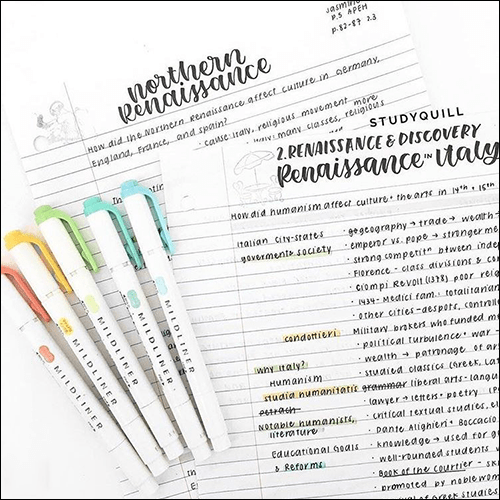 Jasmine
p.5 APEH
p.82-87 2.3
northern
Renaissance
How did the Northern Renaissance affect culture in Germany,
England, France, and Spain?
cause: Italy, religious movement more
Italy: many classes, religious
STUDYQUILL
2. RENAISSANCE & DISCOVERY
Renaissance IN Italy
How did humanism affect culture + the arts in 14th + 15th
Italian City-States
· geography → trade → wealth
goverments society
· emperor vs. pope → stronger me
· strong competitn btween inde
· Florence - class divisions & co
· Ciompi Revolt (1378) poor reig
· 1434- Medici fam.: totalitarian
· other cities-despots, controll
condottieri
Military brokers who funded m
· political turbulence + war
Why Italy?
· wealth → patronage of ar
Humanism
· studied classics (Greek, Lat
studia humanitatis
grammar liberal arts- langua
petrach
· lawyer + letters + poetry
Notable humanists,
· critical textual studies, el
literature
· Dante Alighieri + Boccaccio
Educational Goals
· knowledge → used for g
& Reforms
· well-rounded students
· Book of the Courtier - sk
promoted by noblewom
MILDLINER
MILDLINER
MILDLINER
MILDLINER
MILDLINER